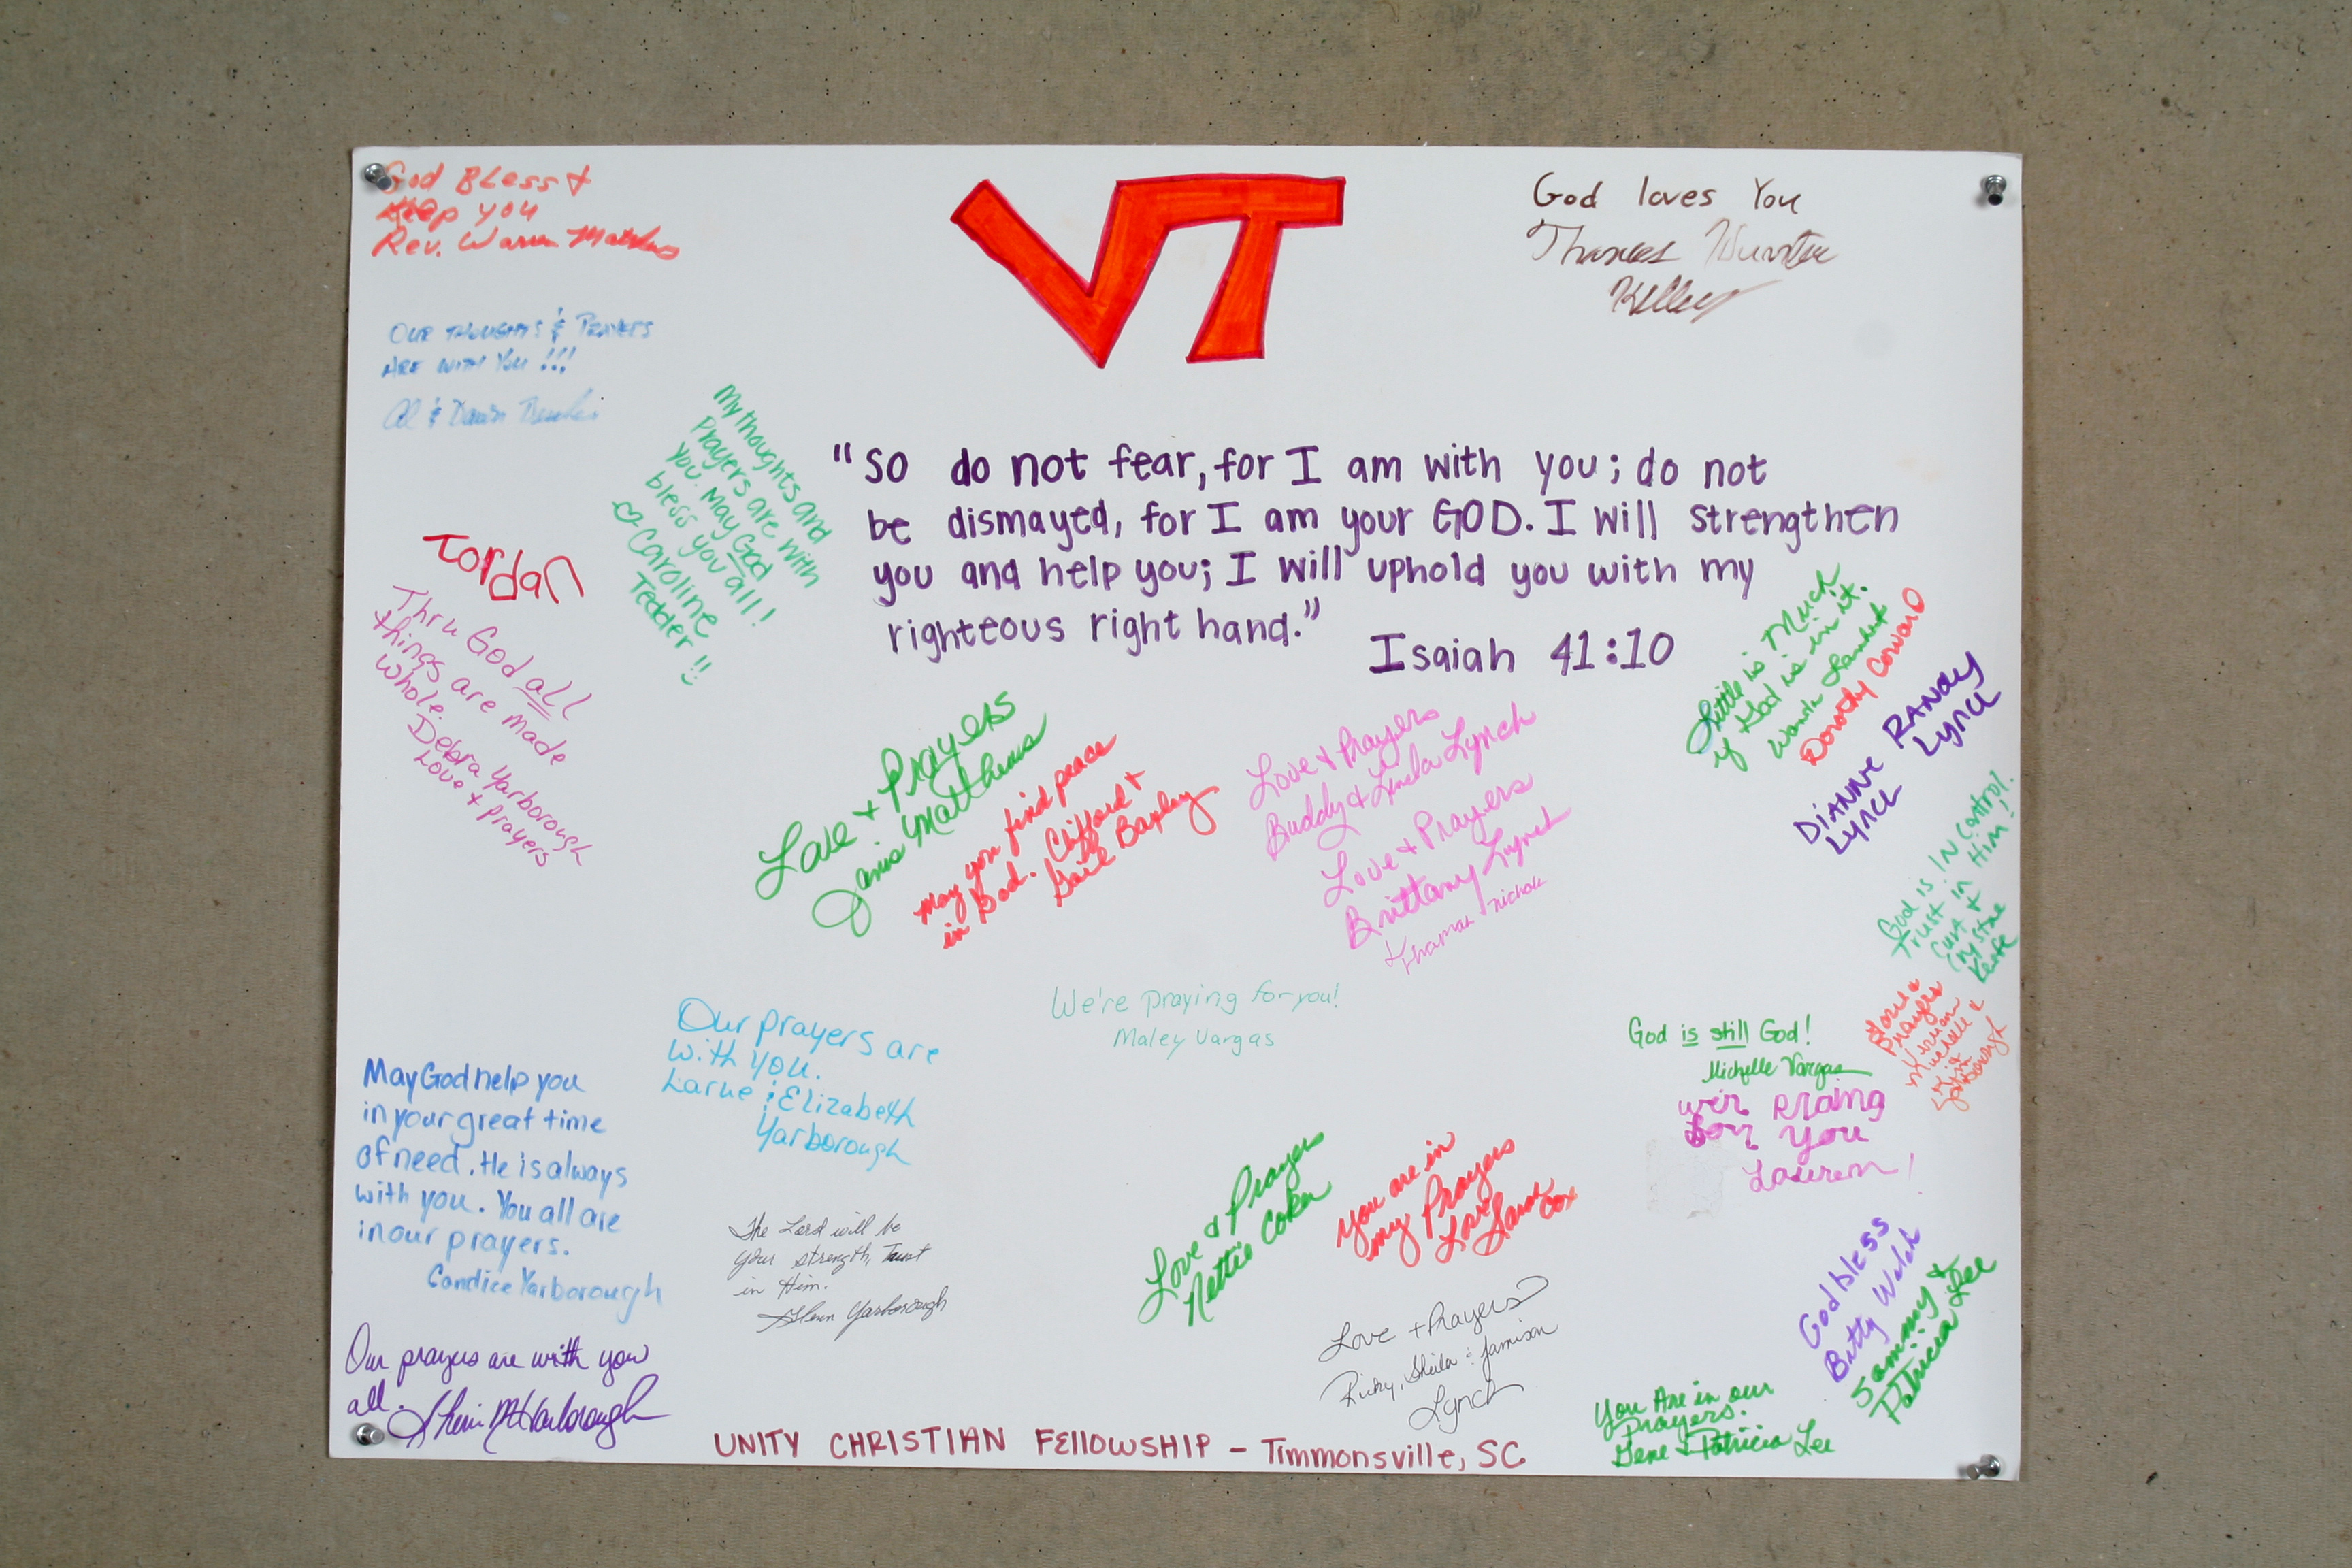 God Bless &
Keep you
Rev. Warren Matthews
VT
God loves You
Kelley
OUR THOUGHTS & PRAYERS
ARE WITH YOU !!!
My thoughts and
Prayers are with
you. May God
bless you all!
♡ Caroline
Tedder!!
"So do not fear, for I am with you; do not
be dismayed, for I am your GOD. I will strengthen
you and help you; I will uphold you with my
righteous right hand."
Isaiah 41:10
Jordan
Thru God all
things are made
Whole.
Debra Yarborough
Love & prayers
Love & Prayers
Janis Matthews
May you find peace
in God. Clifford &
Gail Baxley
Love & Prayers
Buddy & Linda Lynch
Love & Prayers
Brittany Lynch
Little is Much
if God is in it.
Dorothy Coward
DIANNE
LYNCH
RANDY
LYNCH
God is IN Control.
Trust in Him!
Curt &
Love &
Prayers
We're praying for you!
Maley Vargas
Our prayers are
with you.
Larue & Elizabeth
Yarborough
God is still God!
Michelle Vargas
wer Praing
for you
Lauren!
May God help you
in your great time
of need. He is always
with you. You all are
in our prayers.
Candice Yarborough
The Lord will be
your strength, Trust
in Him.
Yarborough
Love & Prayers
Nettie Coker
You are in
my Prayers
Love
Cox
Love + Prayers
Ricky, Sheila & Jamison
Lynch
God bless
Betty Welch
Sammy &
Patricia Lee
You Are in our
Prayers.
Gene & Patricia Lee
Our prayers are with you
all.
UNITY CHRISTIAN FELLOWSHIP - Timmonsville, SC